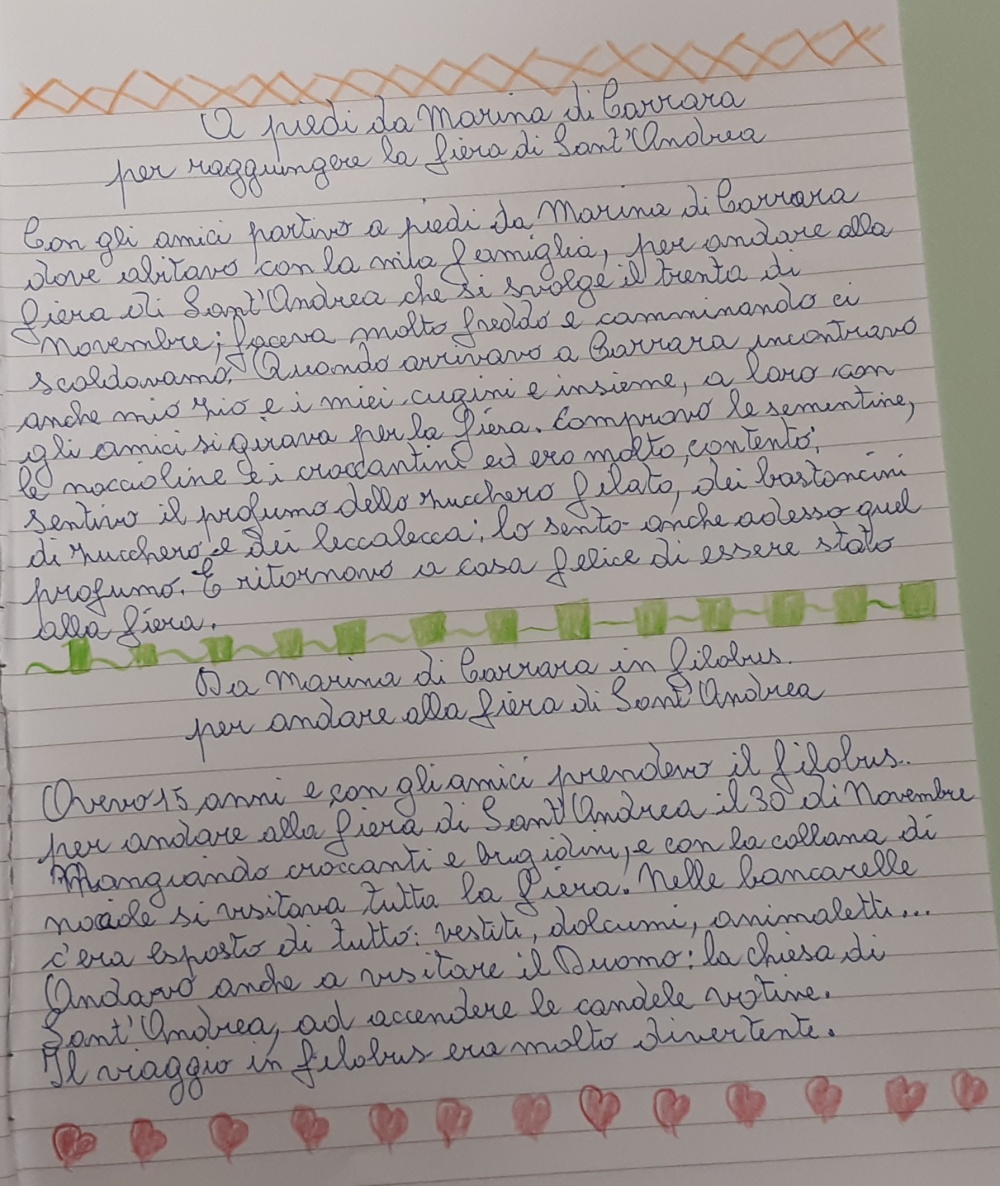 A piedi da Marina di Carrara
per raggiungere la fiera di Sant'Andrea
Con gli amici partivo a piedi da Marina di Carrara
dove abitavo con la mia famiglia, per andare alla
fiera di Sant'Andrea che si svolge il trenta di
Novembre; faceva molto freddo e camminando ci
scaldavamo. Quando arrivavo a Carrara incontravo
anche mio zio e i miei cugini e insieme, a loro con
gli amici si girava per la fiera. Compravo le sementine,
le noccioline e i croccantini ed ero molto contento;
sentivo il profumo dello zucchero filato, dei bastoncini
di zucchero e dei leccalecca; lo sento anche adesso quel
profumo. E ritornavo a casa felice di essere stato
alla fiera.
Da Marina di Carrara in filobus
per andare alla fiera di Sant'Andrea
Avevo 15 anni e con gli amici prendevo il filobus
per andare alla fiera di Sant'Andrea il 30 di Novembre
Mangiando croccanti e brigidini, e con la collana di
nocciole si visitava tutta la fiera. Nelle bancarelle
c'era esposto di tutto: vestiti, dolciumi, animaletti...
Andavo anche a visitare il Duomo: la chiesa di
Sant'Andrea, ad accendere le candele votive.
Il viaggio in filobus era molto divertente.